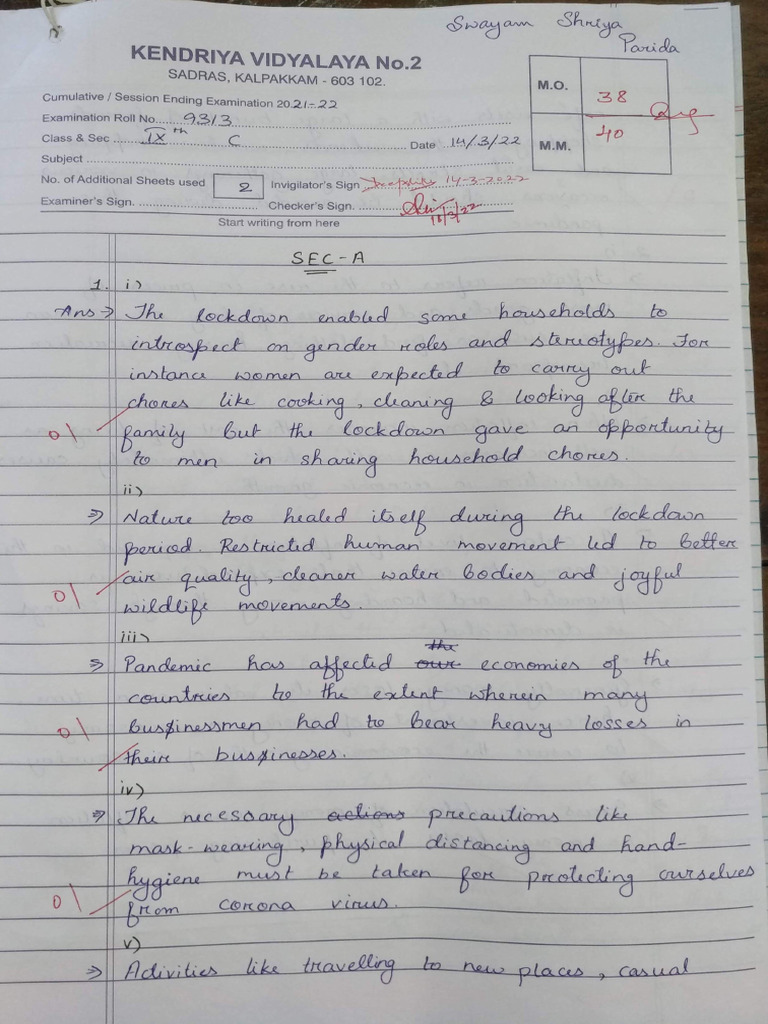 Swayam Shriya
Parida
KENDRIYA VIDYALAYA No.2
SADRAS, KALPAKKAM - 603 102.
M.O. 38
M.M. 40
Cumulative / Session Ending Examination 2021-22
Examination Roll No. 9313
Class & Sec IXth C Date 14/3/22
Subject
No. of Additional Sheets used 2 Invigilator's Sign 14-3-2022
Examiner's Sign. Checker's Sign.
Start writing from here
SEC-A
1. i)
Ans → The lockdown enabled some households to
introspect on gender roles and stereotypes. For
instance women are expected to carry out
chores like cooking, cleaning & looking after the
01 family but the lockdown gave an opportunity
to men in sharing household chores.
ii)
⇒ Nature too healed itself during the lockdown
period. Restricted human movement led to better
01 air quality, cleaner water bodies and joyful
wildlife movements.
iii)
the
⇒ Pandemic has affected our economies of the
countries to the extent wherein many
01 businessmen had to bear heavy losses in
their businesses.
iv)
⇒ The necessary actions precautions like
mask-wearing, physical distancing and hand-
hygiene must be taken for protecting ourselves
01 from corona virus.
v)
⇒ Activities like travelling to new places, casual